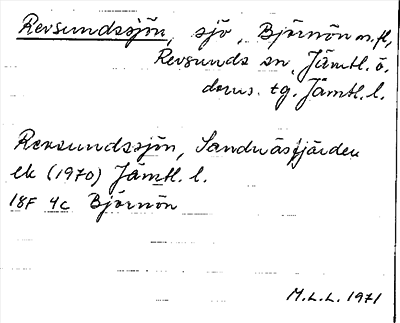 Revsundssjön, sjö, Björnön m.fl,
Revsunds sn, Jämtl. ö.
doms. tg. Jämtl. l.
Revsundssjön, Sandnäsfjärden
ek (1970) Jämtl. l.
18F 4c Björnön
M.L.L. 1971